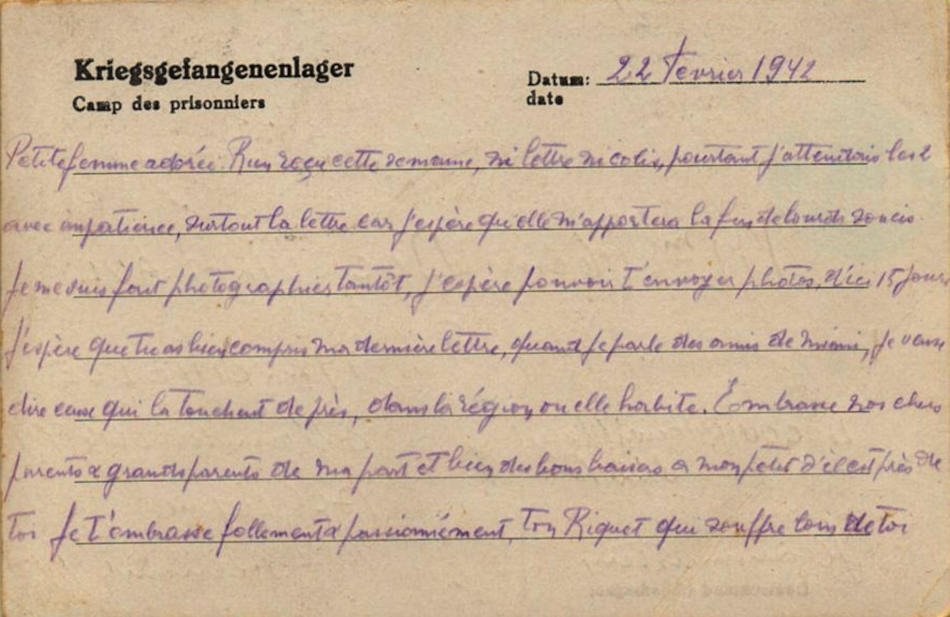 Kriegsgefangenenlager
Camp des prisonniers
Datum: 22 Fevrier 1942
date
Petite femme adorée. Rien reçu cette semaine, ni lettre ni colis, pourtant j'attendais les 2
avec impatience, surtout la lettre car j'espère qu'elle m'apportera la fin de lourds soucis.
Je me suis fait photographier tantôt, j'espère pouvoir t'envoyer photos, d'ici 15 jours
J'espère que tu as bien compris ma dernière lettre, quand je parle des amis de mimi, je veux
dire ceux qui la touchent de près, dans la région où elle habite. Embrasse nos chers
parents & grands parents de ma part et bien des bons baisers a mon petit s'il est près de
toi Je t'embrasse follement & passionnément, ton Riquet qui souffre loin de toi